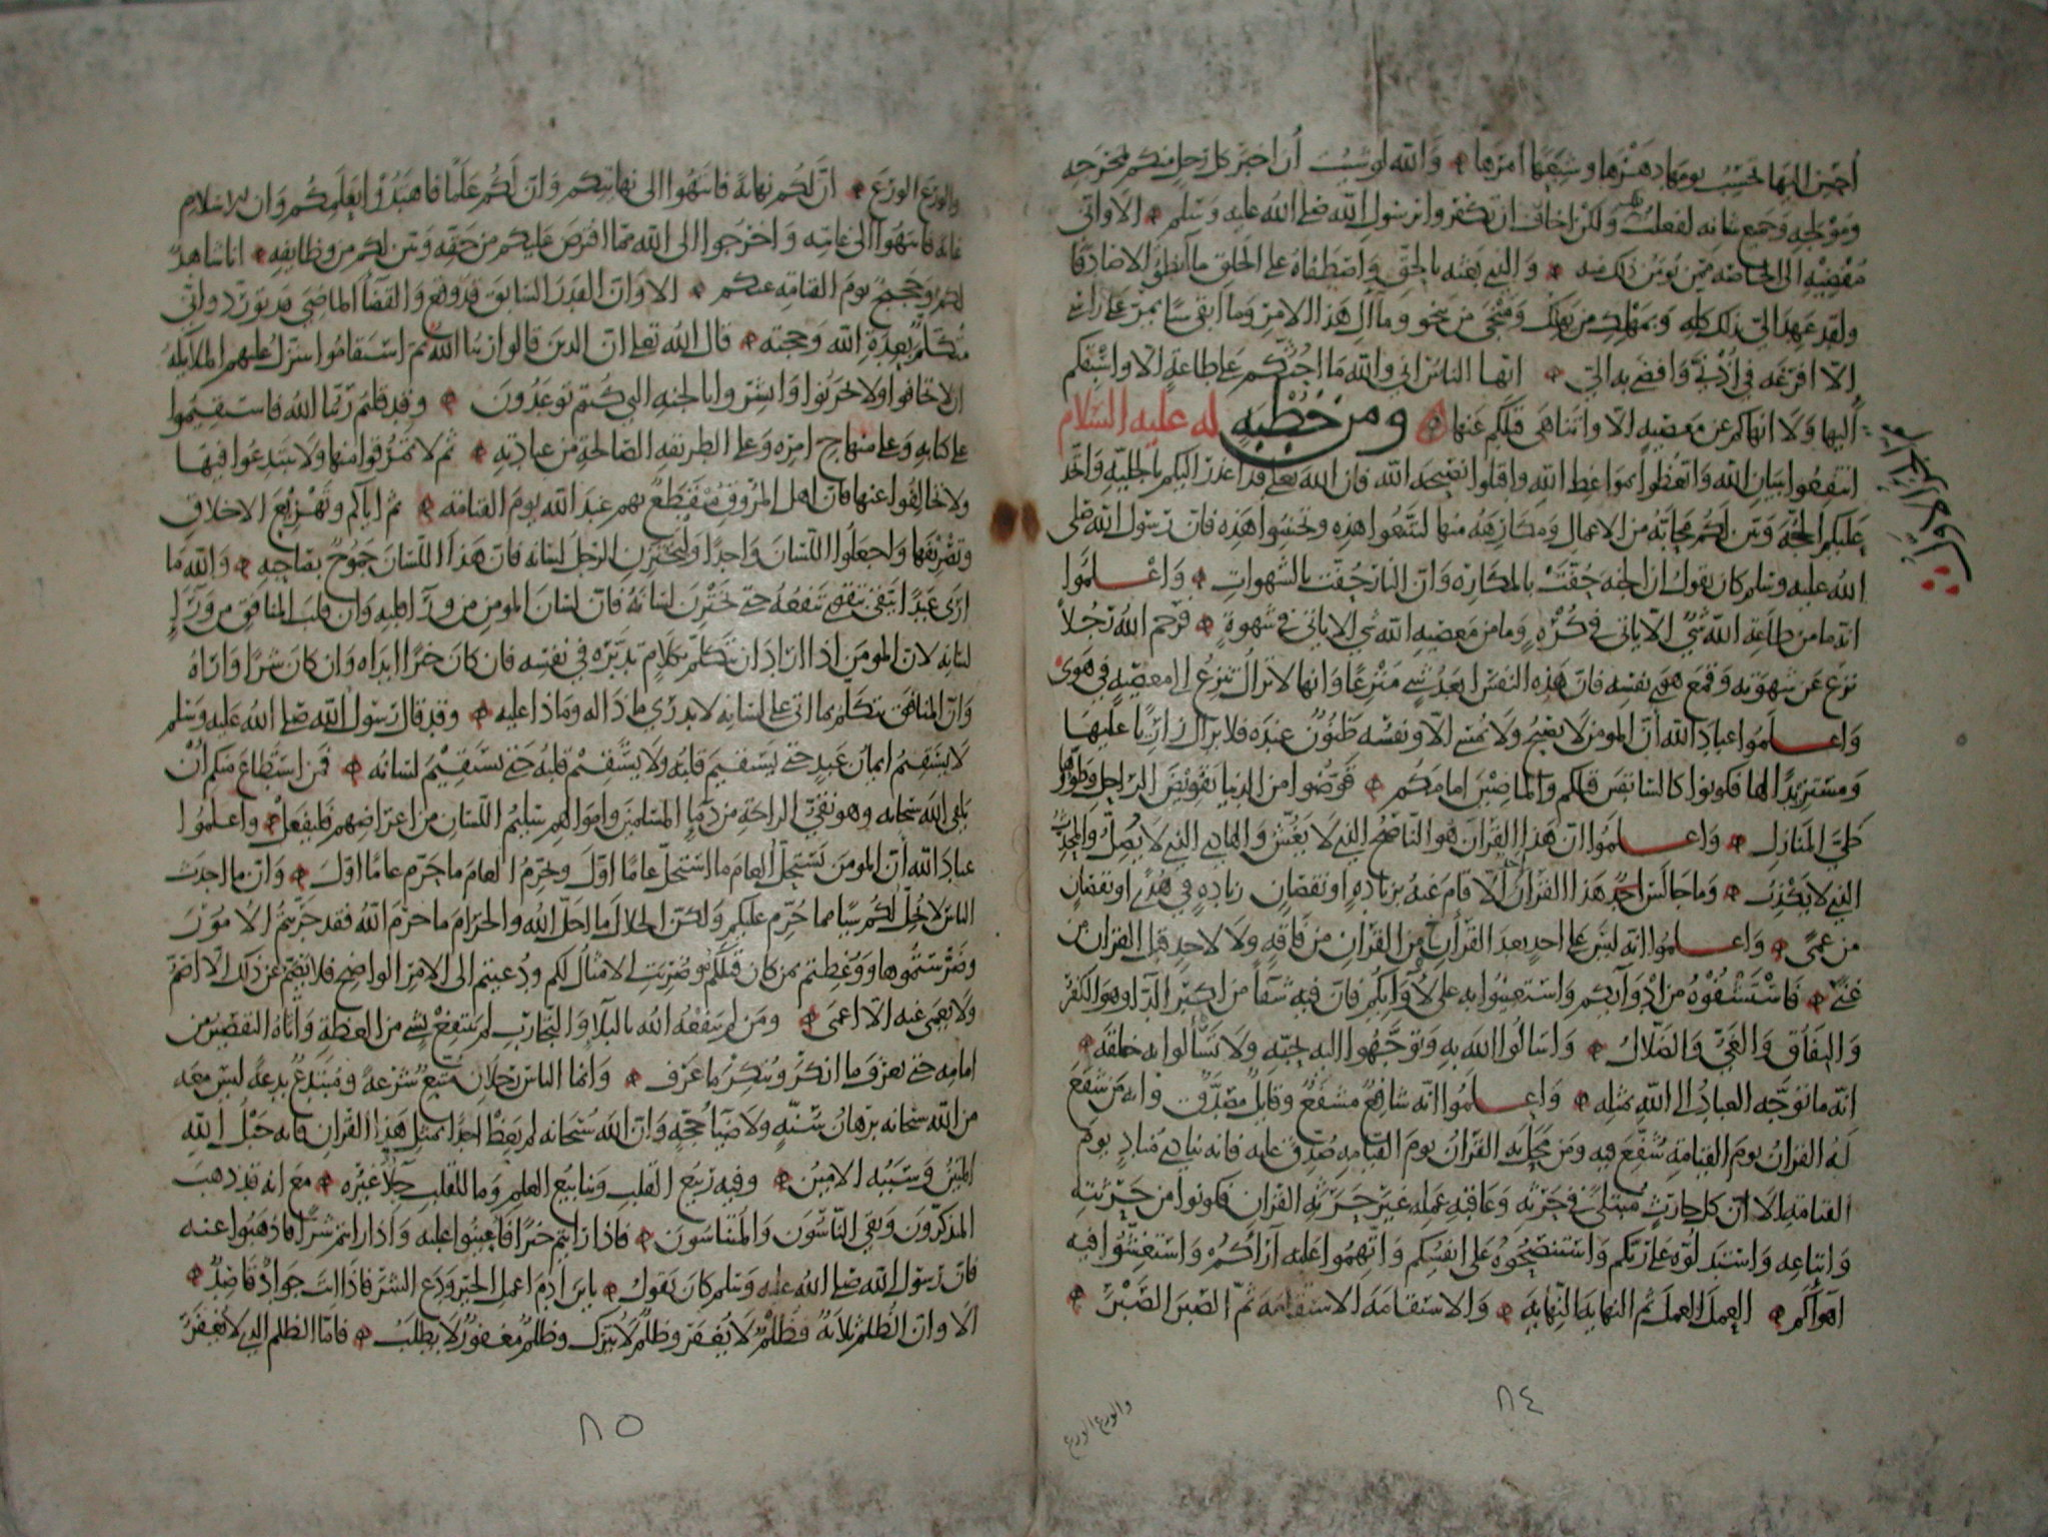 أحسن إليها تحسب يومها دهرها وشبعها أمرها والله لو شئت أن أخبر كل رجل منكم بمخرجه
ومولجه وجميع شأنه لفعلت ولكن أخاف أن تكفروا في رسول الله صلى الله عليه وسلم ألا وإني
مفضيه إلى الخاصة ممن يؤمن ذلك منه والذي بعثه بالحق واصطفاه على الخلق ما أنطق إلا صادقا
ولقد عهد إلي بذلك كله وبمهلك من يهلك ومنجى من ينجو ومآل هذا الأمر وما أبقى شيئا يمر على رأسي
إلا أفرغه في أذني وأفضى به إلي أيها الناس إني والله ما أحثكم على طاعة إلا وأسبقكم
إليها ولا أنهاكم عن معصية إلا وأتناهى قبلكم عنها ومن خطبة له عليه السلام
انتفعوا ببيان الله واتعظوا بمواعظ الله واقبلوا نصيحة الله فإن الله تعالى قد أعذر إليكم بالجلية واتخذ
عليكم الحجة وبين لكم محابه من الأعمال ومكارهه منها لتتبعوا هذه وتجتنبوا هذه فإن رسول الله صلى
الله عليه وسلم كان يقول إن الجنة حفت بالمكاره وإن النار حفت بالشهوات واعلموا
أنه ما من طاعة الله شيء إلا يأتي في كره وما من معصية الله شيء إلا يأتي في شهوة فرحم الله رجلا
نزع عن شهوته وقمع هوى نفسه فإن هذه النفس أبعد شيء منزعا وإنها لا تزال تنزع إلى معصية في هوى
واعلموا عباد الله أن المؤمن لا يصبح ولا يمسي إلا ونفسه ظنون عنده فلا يزال زاريا عليها
ومستزيدا لها فكونوا كالسابقين قبلكم والماضين أمامكم قوضوا من الدنيا تقويض الراحل وطووها
طي المنازل واعلموا أن هذا القرآن هو الناصح الذي لا يغش والهادي الذي لا يضل والمحدث
الذي لا يكذب وما جالس أحد هذا القرآن إلا قام عنه بزيادة أو نقصان زيادة في هدى أو نقصان
من عمى واعلموا أنه ليس على أحد بعد القرآن من القرآن من فاقة ولا لأحد قبل القرآن من
غنى فاستشفوه من أدوائكم واستعينوا به على لأوائكم فإن فيه شفاء من أكبر الداء وهو الكفر
والنفاق والغي والضلال واسألوا الله به وتوجهوا إليه بحبه ولا تسألوا به خلقه
إنه ما توجه العباد إلى الله بمثله واعلموا أنه شافع مشفع وقائل مصدق وأنه من شفع
له القرآن يوم القيامة شفع فيه ومن محل به القرآن يوم القيامة صدق عليه فإنه ينادي مناد يوم
القيامة ألا إن كل حارث مبتلى في حرثه وعاقبة عمله غير حرثة القرآن فكونوا من حرثته
وأتباعه واستدلوه على ربكم واستنصحوه على أنفسكم واتهموا عليه آراءكم واستغشوا فيه
أهواءكم العمل العمل ثم النهاية النهاية والاستقامة الاستقامة ثم الصبر الصبر
والورع الورع
٨٤
والورع الورع إن لكم نهاية فانتهوا إلى نهايتكم وإن لكم علما فاهتدوا بعلمكم وإن للإسلام
غاية فانتهوا إلى غايته واخرجوا إلى الله مما افترض عليكم من حقه وبين لكم من وظائفه أنا شاهد
لكم وحجيج يوم القيامة عنكم ألا وإن القدر السابق قد وقع والقضاء الماضي قد تورد وإني
متكلم بعدة الله وحجته قال الله تعالى إن الذين قالوا ربنا الله ثم استقاموا تتنزل عليهم الملائكة
ألا تخافوا ولا تحزنوا وأبشروا بالجنة التي كنتم توعدون وقد قلتم ربنا الله فاستقيموا
على كتابه وعلى منهاج أمره وعلى الطريقة الصالحة من عبادته ثم لا تمرقوا منها ولا تبتدعوا فيها
ولا تخالفوا عنها فإن أهل المروق منقطع بهم عند الله يوم القيامة ثم إياكم وتهزيع الأخلاق
وتصريفها واجعلوا اللسان واحدا وليختزن الرجل لسانه فإن هذا اللسان جموح بصاحبه والله ما
أرى عبدا يتقي تقوى تنفعه حتى يختزن لسانه فإن لسان المؤمن من وراء قلبه وإن قلب المنافق من وراء
لسانه لأن المؤمن إذا أراد أن يتكلم بكلام تدبره في نفسه فإن كان خيرا أبداه وإن كان شرا واراه
وإن المنافق يتكلم بما أتى على لسانه لا يدري ماذا له وماذا عليه وقد قال رسول الله صلى الله عليه وسلم
لا يستقيم إيمان عبد حتى يستقيم قلبه ولا يستقيم قلبه حتى يستقيم لسانه فمن استطاع منكم أن
يلقى الله سبحانه وهو نقي الراحة من دماء المسلمين وأموالهم سليم اللسان من أعراضهم فليفعل واعلموا
عباد الله أن المؤمن يستحل العام ما استحل عاما أول ويحرم العام ما حرم عاما أول وإن ما أحدث
الناس لا يحل لكم شيئا مما حرم عليكم ولكن الحلال ما أحل الله والحرام ما حرم الله فقد جربتم الأمور
وضرستموها ووعظتم بمن كان قبلكم وضربت الأمثال لكم ودعيتم إلى الأمر الواضح فلا يصم عن ذلك إلا أصم
ولا يعمى عنه إلا أعمى ومن لم ينفعه الله بالبلاء والتجارب لم ينتفع بشيء من العظة وأتاه التقصير من
أمامه حتى يعرف ما أنكر وينكر ما عرف وإنما الناس رجلان متبع شرعة ومبتدع بدعة ليس معه
من الله سبحانه برهان سنة ولا ضياء حجة وإن الله سبحانه لم يعظ أحدا بمثل هذا القرآن فإنه حبل الله
المتين وسببه الأمين وفيه ربيع القلب وينابيع العلم وما للقلب جلاء غيره مع أنه قد ذهب
المتذكرون وبقي الناسون والمتناسون فإذا رأيتم خيرا فأعينوا عليه وإذا رأيتم شرا فاذهبوا عنه
فإن رسول الله صلى الله عليه وسلم كان يقول يا بن آدم اعمل الخير ودع الشر فإذا أنت جواد قاصد
ألا وإن الظلم ثلاثة فظلم لا يغفر وظلم لا يترك وظلم مغفور لا يطلب فأما الظلم الذي لا يغفر
٨٥